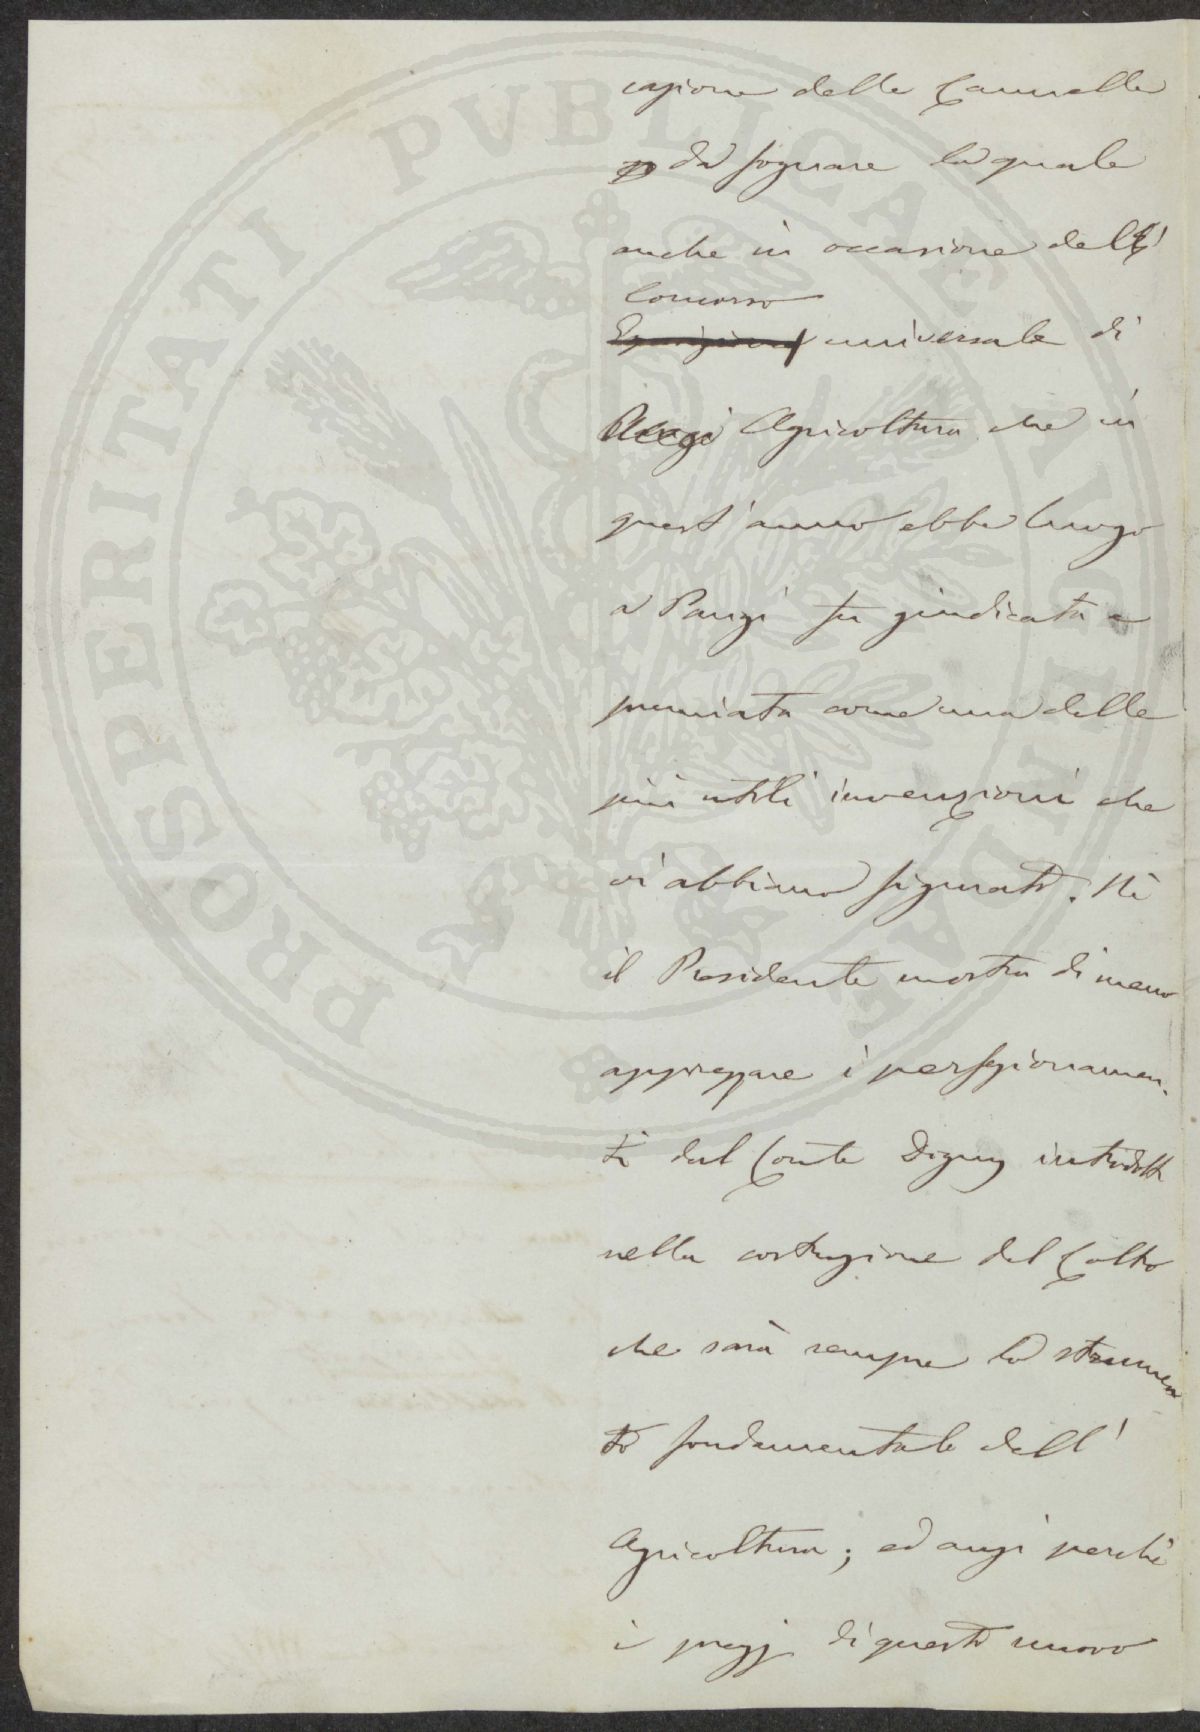 PROSPERITATI PVBLICAE AVGENDAE
cazione delle Cannelle
da fognare la quale
anche in occasione del
Concorso
Esposizione universale di
Agricoltura che in
quest'anno ebbe luogo
a Parigi fu giudicata e
premiata come una delle
più utili invenzioni che
vi abbiano figurato. Nè
il Presidente mostra di meno
apprezzare i perfezionamen-
ti dal Conte Digny introdotti
nella costruzione del Coltro
che sarà sempre lo strumen
to fondamentale dell'
Agricoltura; ed anzi perchè
i pregj di questo nuovo